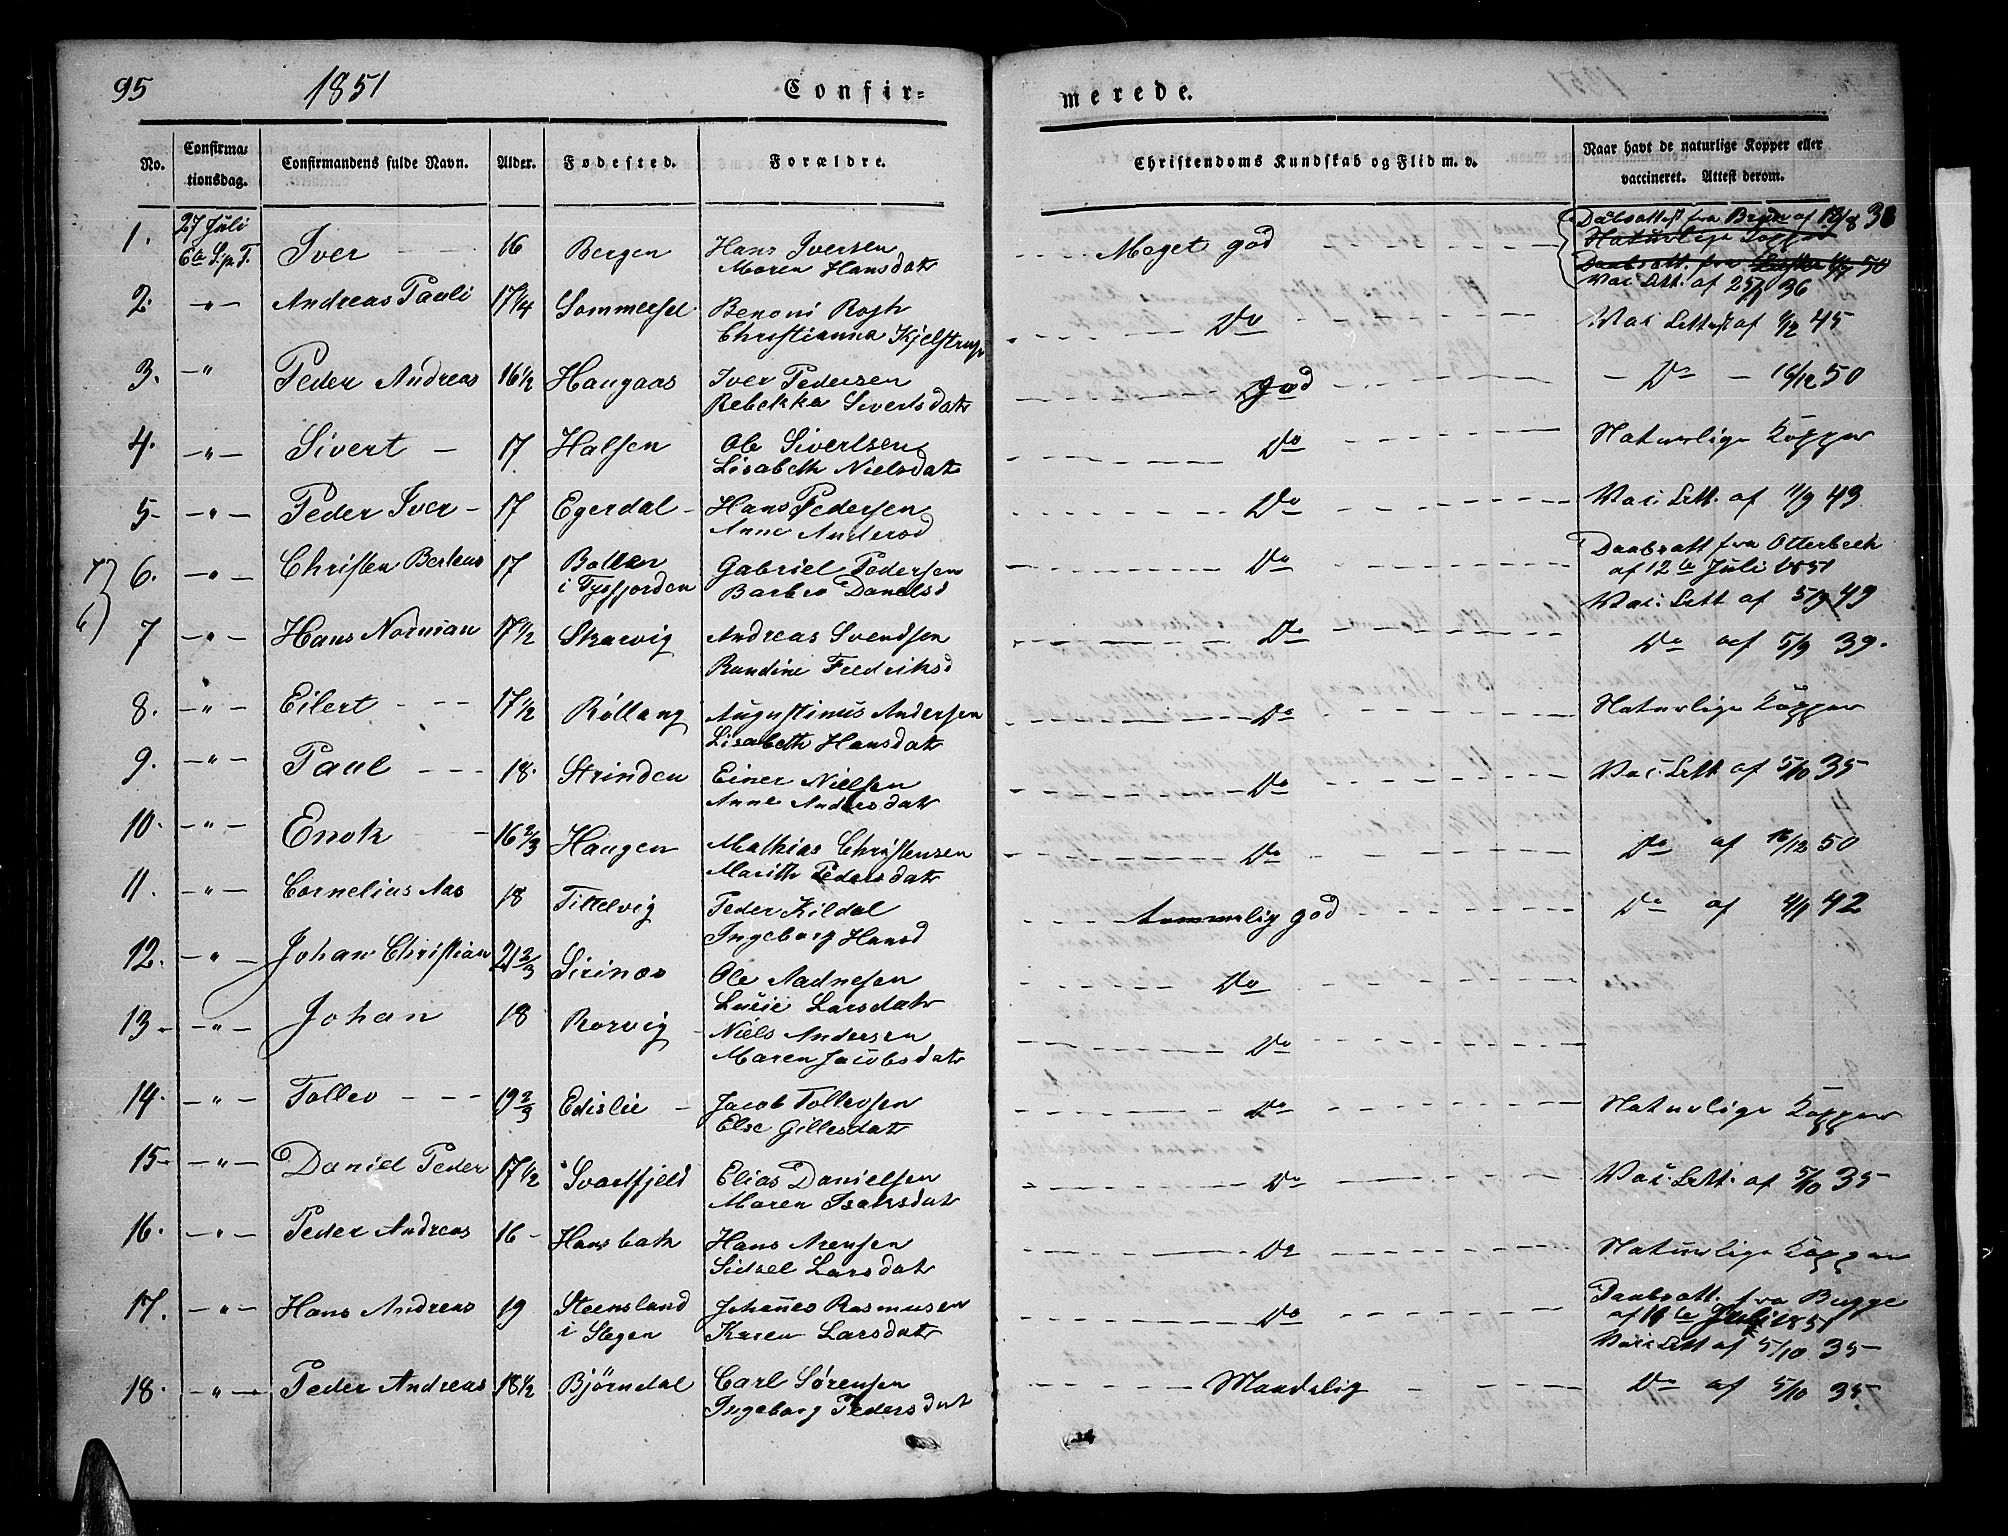 95 1851 Confir-
merede.
No.
Confirma-
tionsdag.
Confirmandens fulde Navn.
Alder.
Fødested.
Forældre.
Christendoms Kundskab og Flid m. v.
Naar havt de naturlige Kopper eller
vaccineret. Attest derom.
1. 27 Juli Iver 16 Bergen Hans Iversen Meget god
6te S.p.T. Maren Hansdatr
Naturlige Kopper
Vac. Att. af 36
2. -"- Andreas Pauli 17 1/4 Sommersel Benoni Rosh Do Vac Attest af 45
Christianna Kjelstrup
3. -" Peder Andreas 16 1/2 Haugaas Iver Pedersen god - Do - 16/12 50
Rebekka Sivertsdatr
4. -"- Sivert - 17 Halsen Ole Sivertsen Do Naturlige Kopper
Lisabeth Nielsdatr
5- -"- Peder Iver - 17 Egerdal - Hans Pedersen Do Vac. Att. af 11/9 43
Anne Andersd
6. -"- Christen Berteus 17 Baller Gabriel Pedersen Do Daabsatt fra Otterbech
i Tysfjorden Barbro Danelsd af 12te Juli 1851
Vac. Att af 5/9 49
7 -"- Hans Norman 17 1/2 Skarvig Andreas Svendsen Do Do af 5/9 39.
Randine Fredriksd
8. -"- Eilert - - - 17 1/2 Røllang Augustinus Andersen Do Naturlige Kopper
Lisabeth Hansdatr
9. -"- Paul - - - 18. Strinden Einer Nielsen Do Vac. Att af 5/10 35
Anne Andersdatr
10. -"- Enok - 16 2/3 Haugen Mathias Christensen Do Do af 16/12 50
Marith Pedersdatr
11. -"- Cornelius Aas 18 Tittelvig Peder Kildal Temmelig god Do af 42
Ingeborg Hansd
12. -"- Johan Christian 21 2/3 Sirines Ole Aadnesen Do
Lucie Larsdatr
13- -"- Johan 18 Rorvig - Niels Andersen Do
Maren Jacobsdatr
14. -"- Tollev - - - 19 2/3 Edislie - Jacob Tollevsen Do Naturlige Kopper
Else Gillesdatr
15- -"- Daniel Peder 17 1/2 Svartfjeld Elias Danielsen Do Vac. Att. af 5/10 35-
Maren Isaksdatr
16. -"- Peder Andreas 16 - Hansbak Hans Arensen Do Naturlige Kopper
Sidsel Larsdatr
17. -"- Hans Andreas 19 Steensland Johannes Rasmusen Do Daabsatt. fra Bugge
i Stegen Karen Larsdatr af 16te Juli 1851
Vac. Att af 5/10 35-
18. -"- Peder Andreas 18 1/2 Bjørndal Carl Sørensen Maadelig Do af 5/10 35
Ingeborg Pedersdat